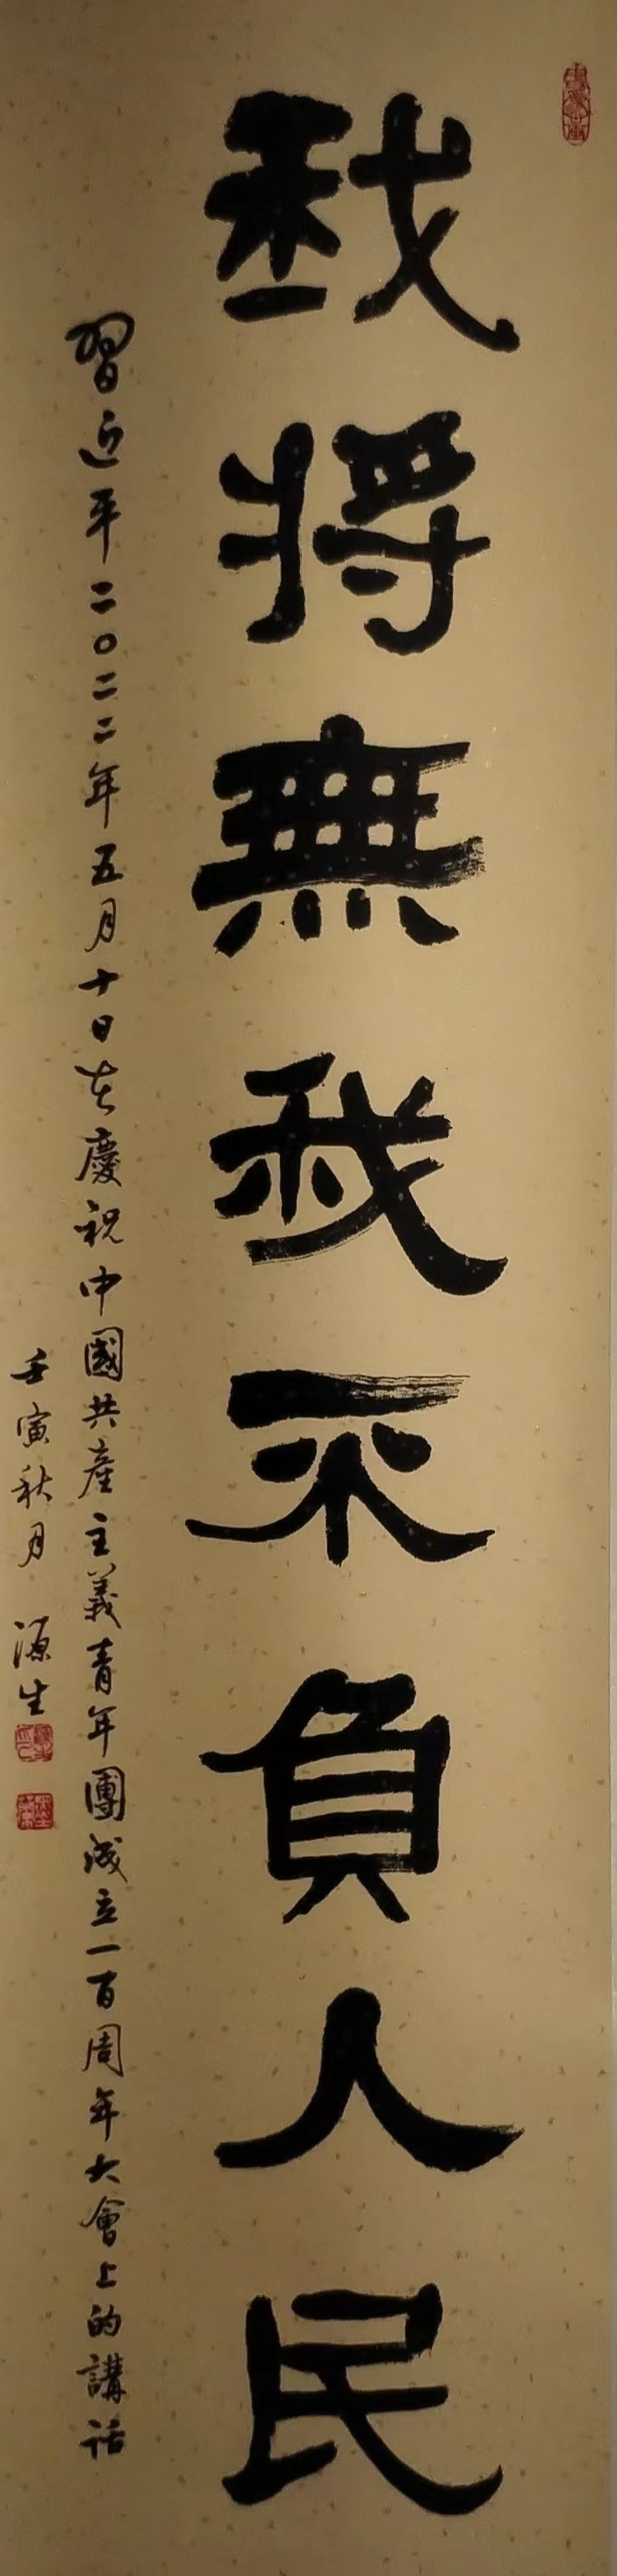 我將無我不負人民
習近平二〇二二年五月十日在慶祝中國共產主義青年團成立一百周年大會上的講話
壬寅秋月 源生